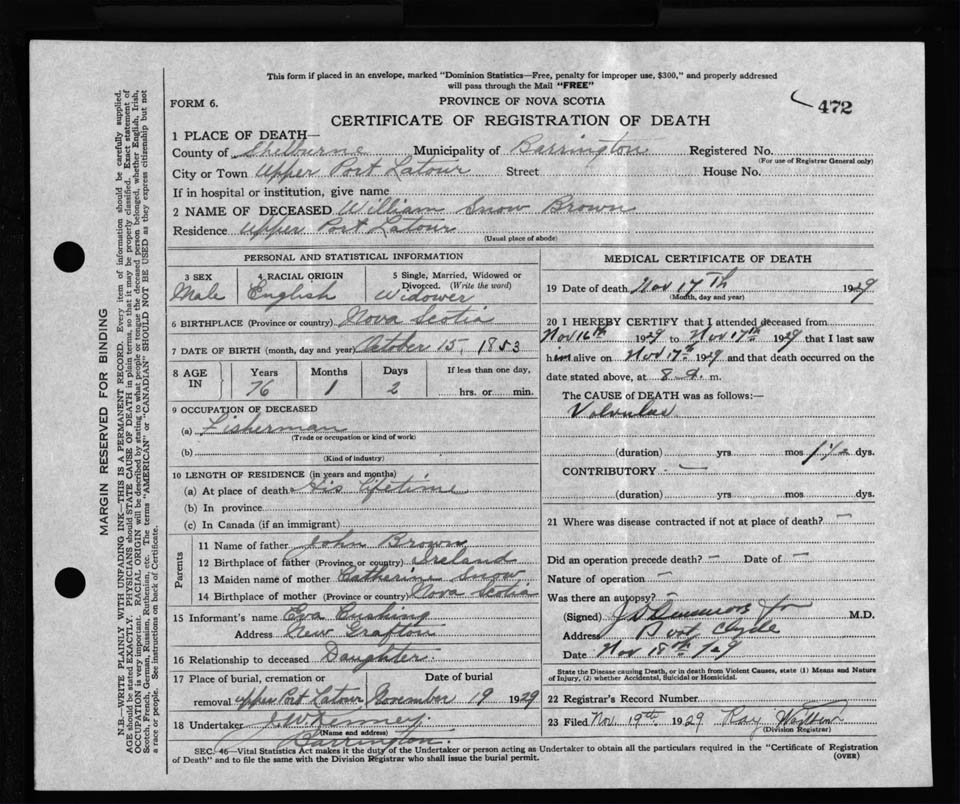 This form if placed in an envelope, marked "Dominion Statistics—Free, penalty for improper use, $300," and properly addressed
will pass through the Mail "FREE"
FORM 6.
PROVINCE OF NOVA SCOTIA
472
CERTIFICATE OF REGISTRATION OF DEATH
1 PLACE OF DEATH—
County of Shelburne Municipality of Barrington Registered No.
(For use of Registrar General only)
City or Town Upper Port Latour Street House No.
If in hospital or institution, give name
2 NAME OF DECEASED William Snow Brown
Residence Upper Port Latour
(Usual place of abode)
PERSONAL AND STATISTICAL INFORMATION
3 SEX 4 RACIAL ORIGIN 5 Single, Married, Widowed or
Divorced. (Write the word)
Male English Widower
6 BIRTHPLACE (Province or country) Nova Scotia
7 DATE OF BIRTH (month, day and year) October 15, 1853
8 AGE IN Years Months Days If less than one day,
76 1 2 hrs. or min.
9 OCCUPATION OF DECEASED
(a) Fisherman
(Trade or occupation or kind of work)
(b)
(Kind of industry)
10 LENGTH OF RESIDENCE (in years and months)
(a) At place of death His lifetime
(b) In province
(c) In Canada (if an immigrant)
Parents
11 Name of father John Brown
12 Birthplace of father (Province or country) Ireland
13 Maiden name of mother Catherine Snow
14 Birthplace of mother (Province or country) Nova Scotia
15 Informant's name Eva Cushing
Address New Grafton
16 Relationship to deceased Daughter
17 Place of burial, cremation or Date of burial
removal Upper Port Latour November 19 1929
18 Undertaker J. W. Kenney
(Name and address)
Barrington
MEDICAL CERTIFICATE OF DEATH
19 Date of death Nov 17th 1929
(Month, day and year)
20 I HEREBY CERTIFY that I attended deceased from
Nov 16th 1929 to Nov 17th 1929 that I last saw
him alive on Nov 17th 1929 and that death occurred on the
date stated above, at 8 a. m.
The CAUSE of DEATH was as follows:—
Volvulus
(duration) yrs mos 1 1/2 dys.
CONTRIBUTORY —
(duration) yrs. mos. dys.
21 Where was disease contracted if not at place of death? —
Did an operation precede death? — Date of —
Nature of operation —
Was there an autopsy? —
(Signed) M.D.
Address Port Clyde
Date Nov 18th 1929
State the Disease causing Death, or in death from Violent Causes, state (1) Means and Nature
of Injury, (2) whether Accidental, Suicidal or Homicidal.
22 Registrar's Record Number
23 Filed Nov. 19th 1929 Ray
(Division Registrar)
SEC. 46—Vital Statistics Act makes it the duty of the Undertaker or person acting as Undertaker to obtain all the particulars required in the "Certificate of Registration
of Death" and to file the same with the Division Registrar who shall issue the burial permit.
(OVER)
MARGIN RESERVED FOR BINDING
N.B.—WRITE PLAINLY WITH UNFADING INK—THIS IS A PERMANENT RECORD. Every item of information should be carefully supplied.
AGE should be stated EXACTLY. PHYSICIANS should STATE CAUSE OF DEATH in plain terms, so that it may be properly classified. Exact statement of
OCCUPATION is very important. RACIAL ORIGIN will be described by stating to what people or tongue the deceased person belonged, whether English, Irish,
Scotch, French, German, Russian, Ruthenian, etc. The terms "AMERICAN" or "CANADIAN" SHOULD NOT BE USED as they express citizenship but not
a race or people. See instructions on back of Certificate.